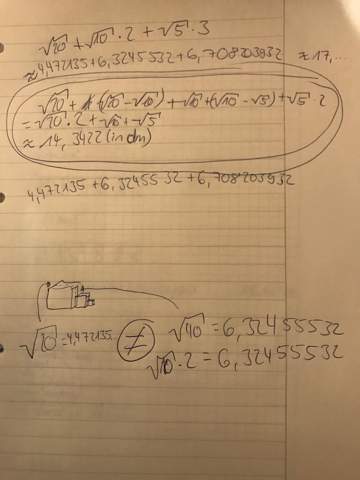 √20 + √10 · 2 + √5 · 3
≈ 4,472135 + 6,3245532 + 6,708203932 ≈ 17,...
√20 + (√20 - √10) + √10 + (√10 - √5) + √5 · 2
= √20 · 2 + √10 + √5
≈ 14,3422 (in dm)
4,472135 + 6,3245532 + 6,708203932
√20 = 4,472135.. ≠ √40 = 6,32455532
√10 · 2 = 6,32455532